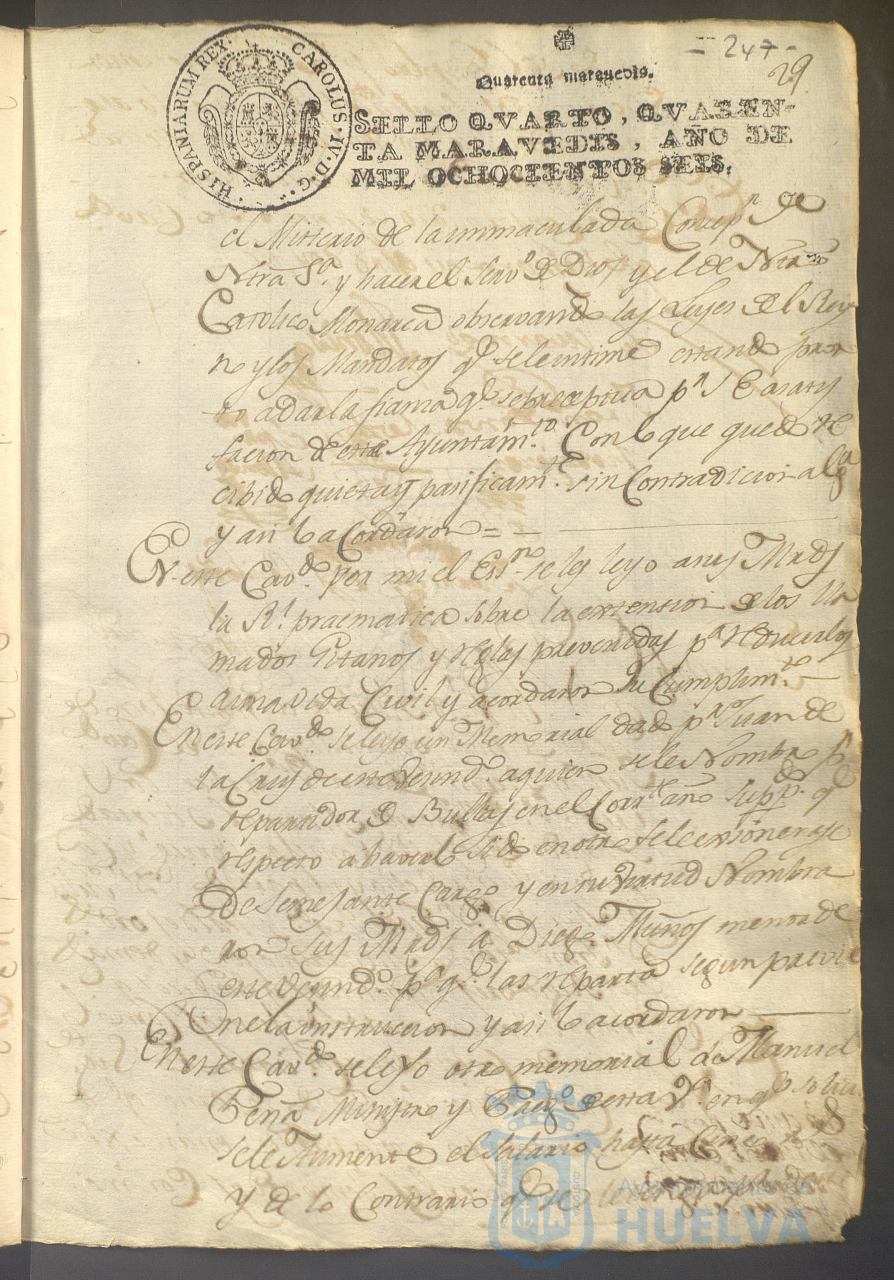 = 247 -
29
HISPANIARUM REX. CAROLUS·IV·D·G·
Quarenta maravedis.
SELLO QVARTO, QVAREN-
TA MARAVEDIS, AÑO DE
MIL OCHOCIENTOS SEIS.
el Misterio de la inmaculada Concepn. de
Ntra Sa. y hacer el Servo. de Dios y el de Ntro
Catolico Monarca observando las Leyes del Rey
no y los Mandatos qe. se le intime estando pron
to a dar la fianza qe. se preceptua pa.
facion de este Ayuntamto. Con lo que quedo re
cibido quieta y pasificamte. sin Contradicion alga
y asi lo acordaron = -
En este Cavdo. por mi el Essno. se les leyo a sus Mrds
la Rl. pracmatica sobre la extencion de los lla
mados Gitanos y reglas prevenidas pa. reducirlos
a una vida Civil y acordaron su Cumplimto.
En este Cavdo. se leyo un Memorial dado pr. Juan de
la Cruz de este Vecindo. a quien se le Nombro pr.
reparador de Bullas en el Corrte. año Suppdo. qe
respecto a haverlo sido en otro se le exsonerase
de semejante Cargo y en su virtud Nombra
ron sus Mrds a Diego Muños menor de
este Vecindo. pa. qe. las reparta segun previe
ne la instruccion y asi lo acordaron
En este Cavdo. se leyo otro memorial de Manuel
Peña Ministro y Pego. de esta Va. en qe. solici
se le Aumente el Salario hasta
y de lo Contrario qe. se
Ayuntamiento de
HUELVA